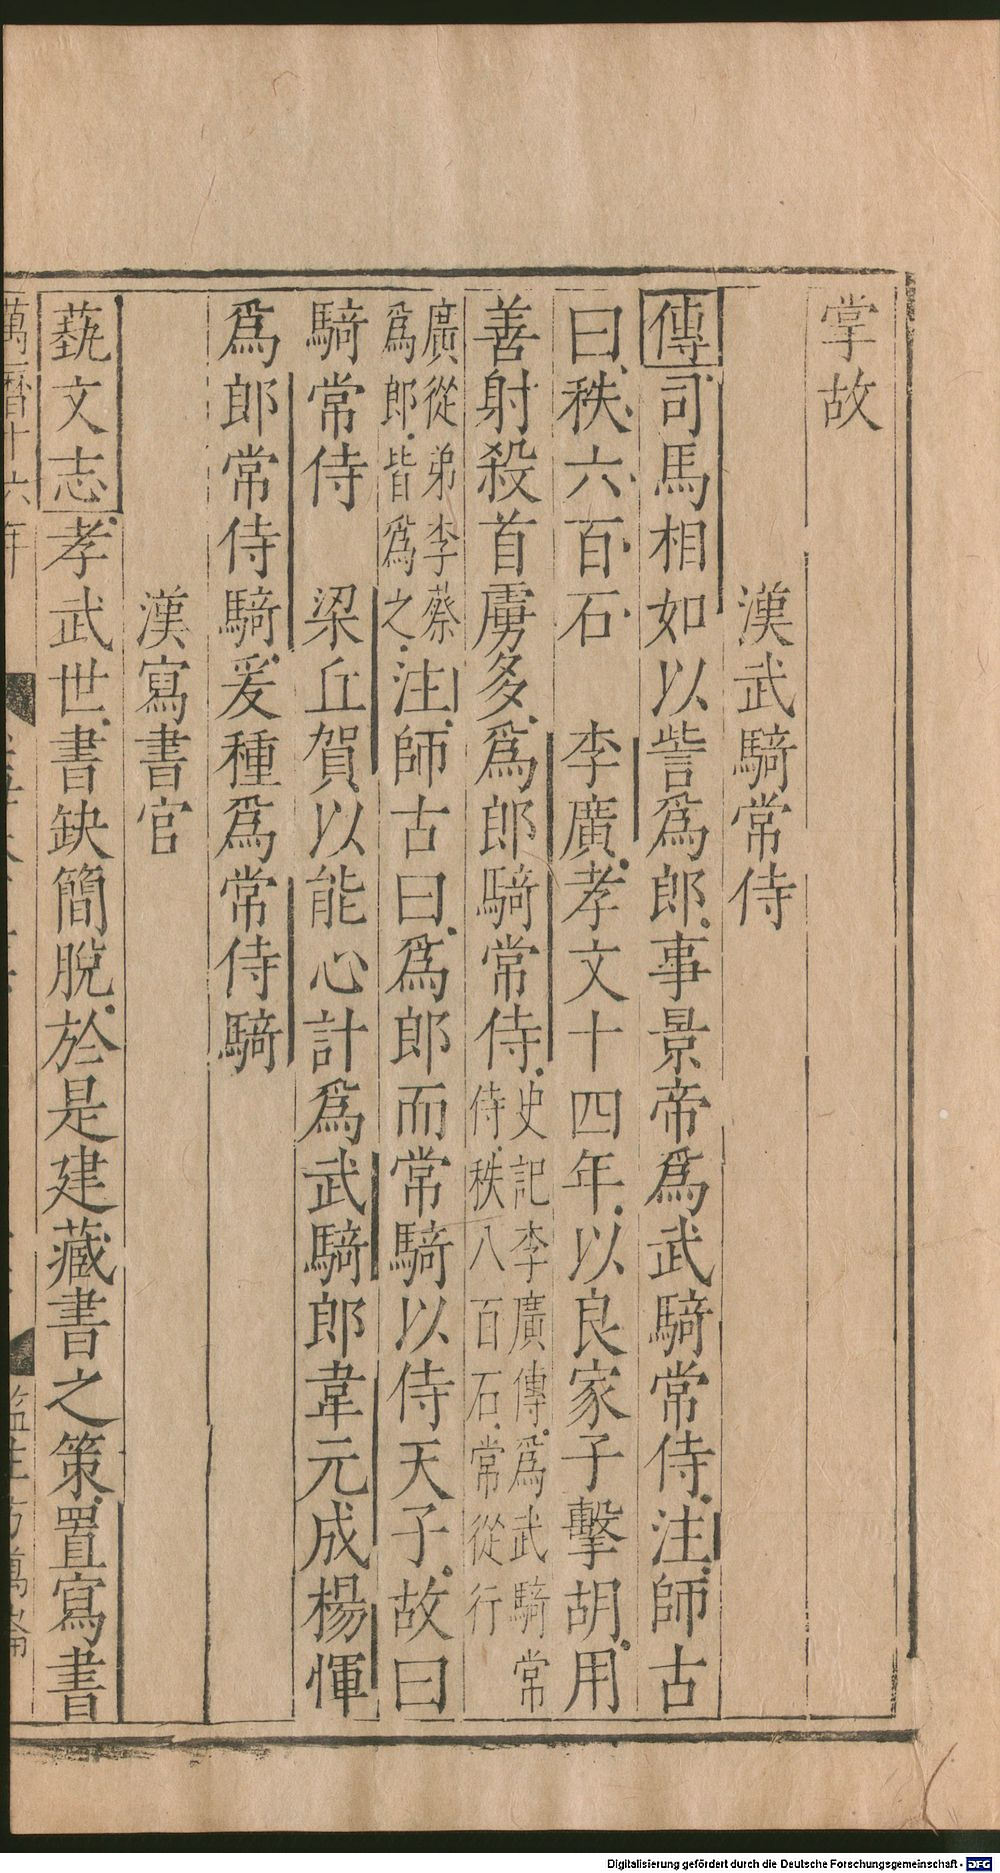 掌故
漢武騎常侍
傳司馬相如以訾爲郎事景帝爲武騎常侍注師古
曰秩六百石　李廣孝文十四年以良家子擊胡用
善射殺首虜多爲郎騎常侍史記李廣傳爲武騎常
侍秩八百石常從行
廣從弟李蔡
爲郎皆爲之注師古曰爲郎而常騎以侍天子故曰
騎常侍　梁丘賀以能心計爲武騎郎韋元成楊惲
爲郎常侍騎爰種爲常侍騎
漢寫書官
蓺文志孝武世書缺簡脫於是建藏書之策置寫書
萬曆十六年
監生方萬崙
Digitalisierung gefördert durch die Deutsche Forschungsgemeinschaft - DFG